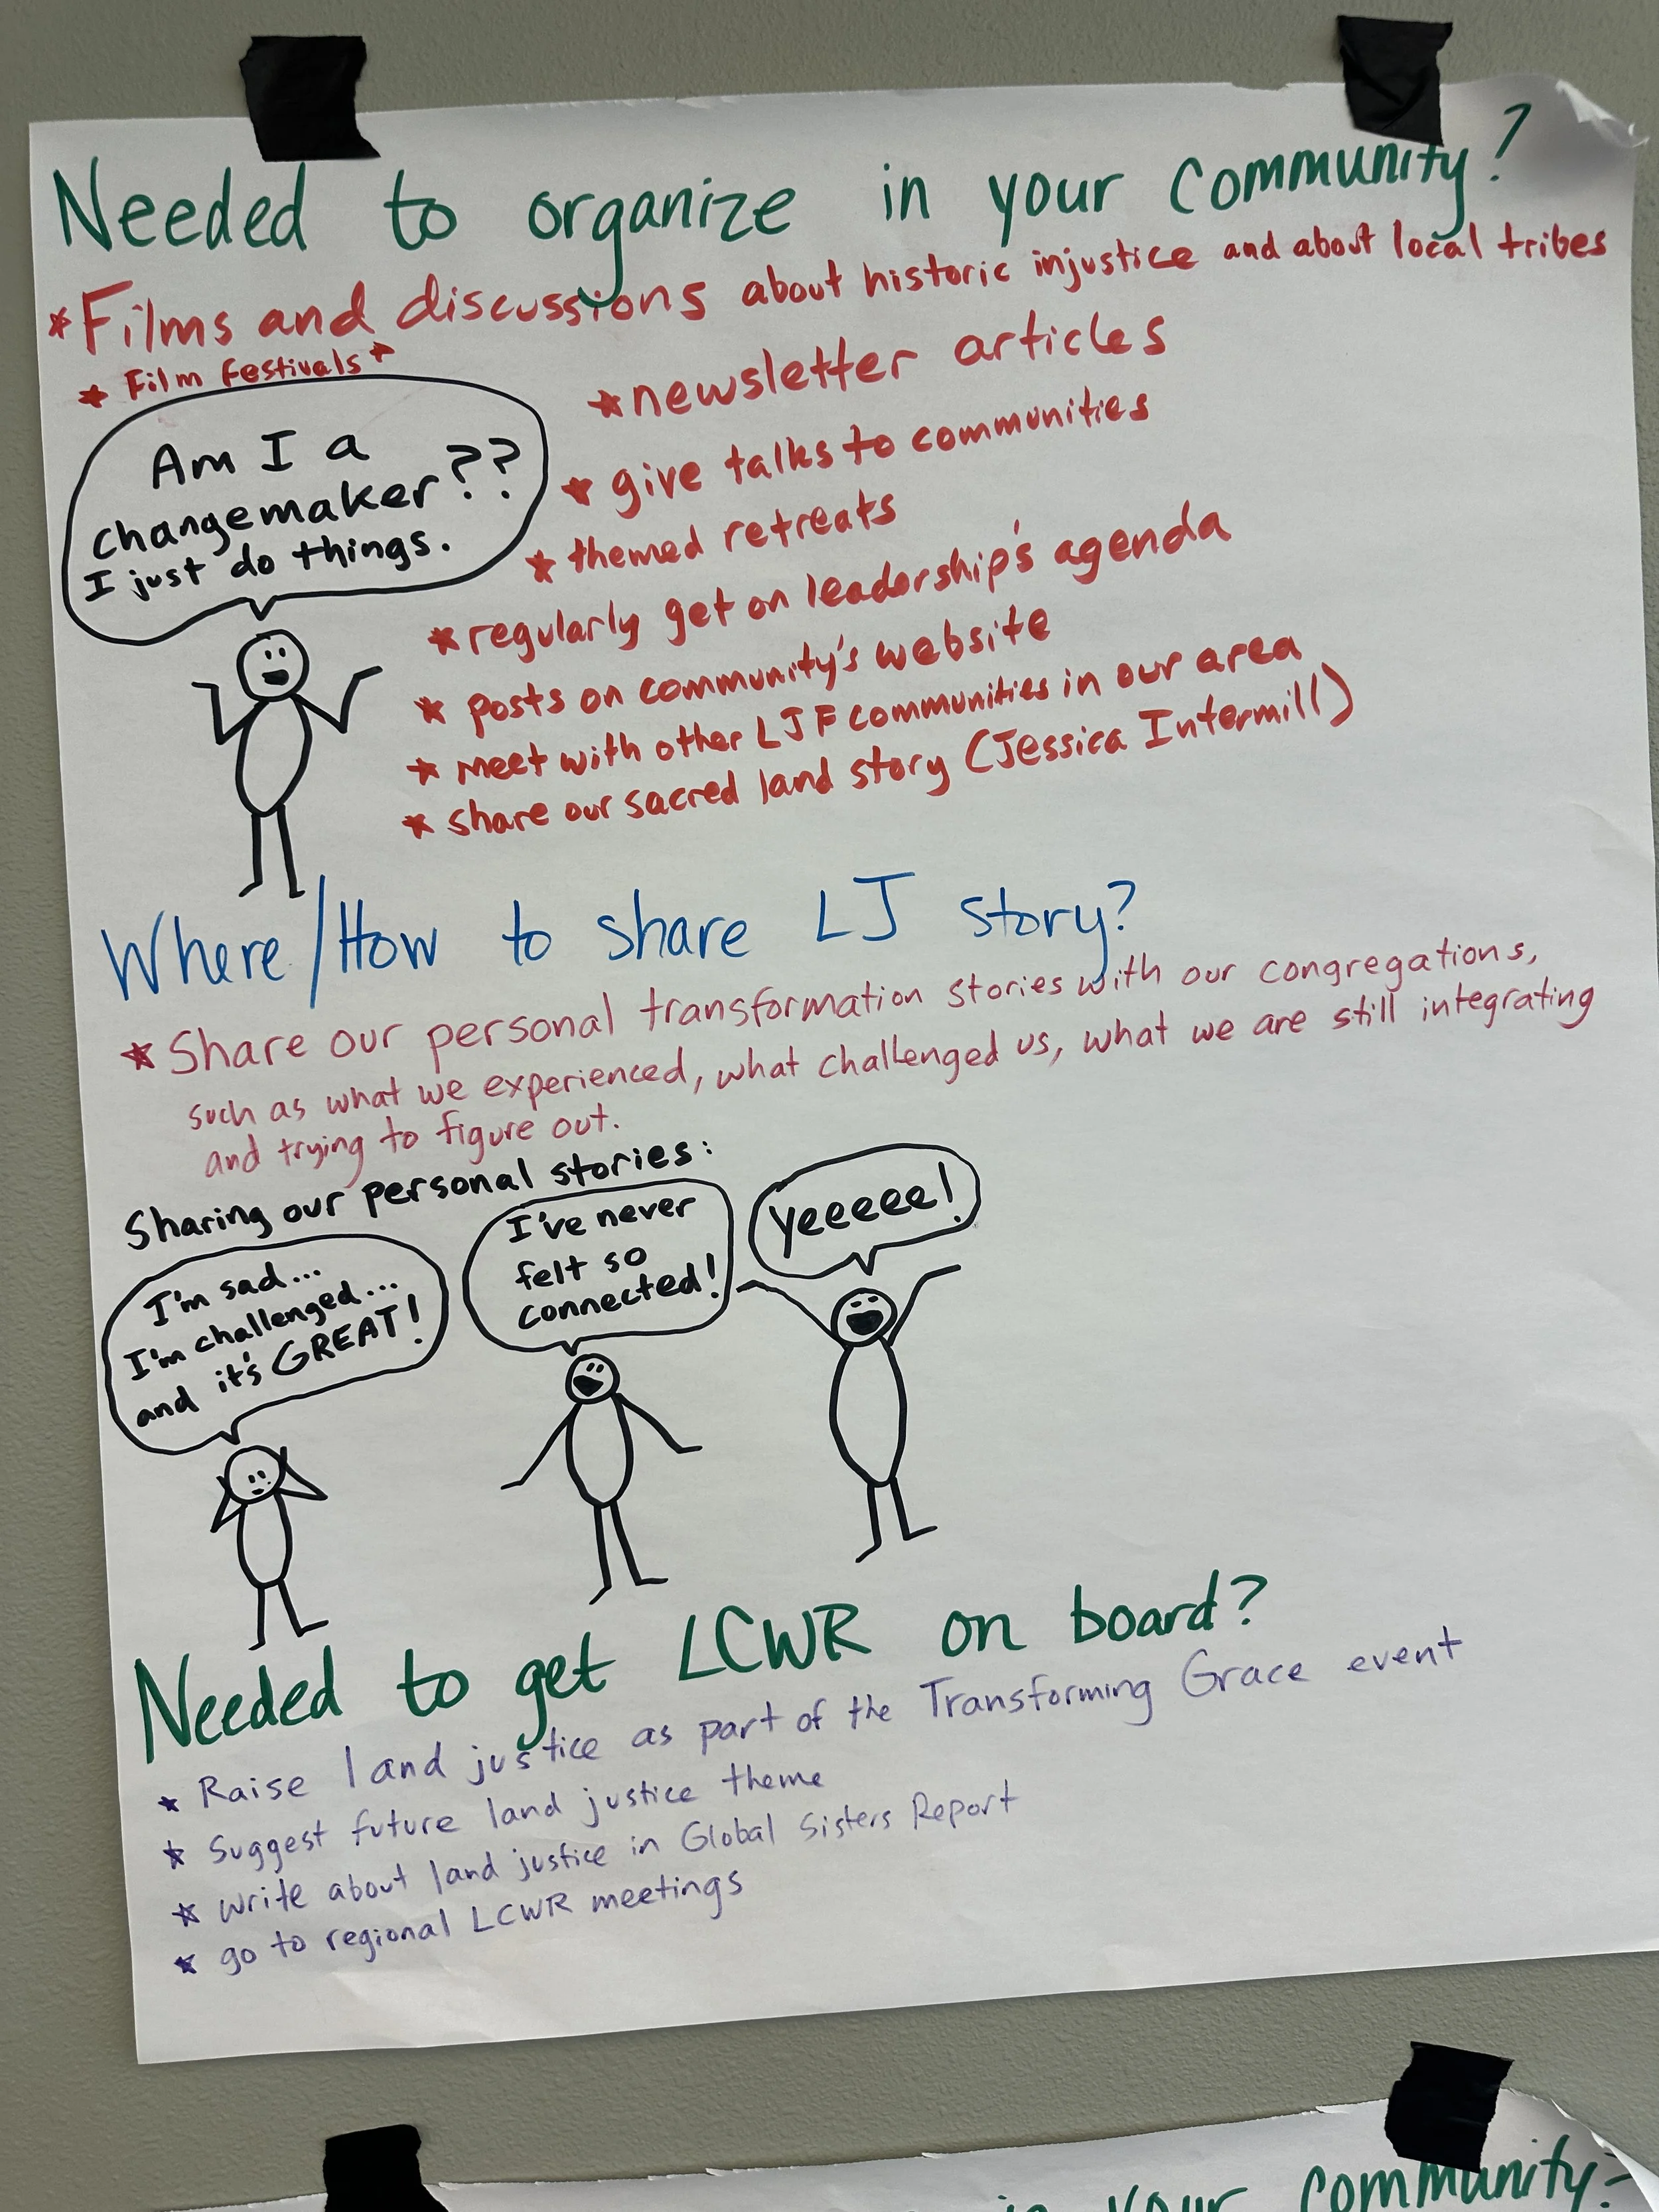 Needed to organize in your community?
*Films and discussions about historic injustice and about local tribes
* Film Festivals *
Am I a
changemaker??
I just do things.
*newsletter articles
* give talks to communities
* themed retreats
* regularly get on leadership's agenda
* posts on community's website
* meet with other LJF communities in our area
* share our sacred land story (Jessica Intermill)
Where/How to share LJ story?
* Share our personal transformation stories with our congregations,
such as what we experienced, what challenged us, what we are still integrating
and trying to figure out.
Sharing our personal stories:
I'm sad...
I'm challenged...
and it's GREAT!
I've never
felt so
connected!
Yeeeee!
Needed to get LCWR on board?
* Raise land justice as part of the Transforming Grace event
* Suggest future land justice theme
* write about land justice in Global Sisters Report
* go to regional LCWR meetings
in your community?